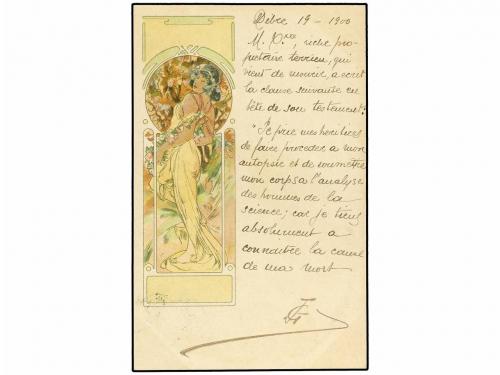 Débre 19 - 1900
M. X**, riche pro-
priétaire terrien, qui
vient de mourir, a écrit
la clause suivante en
tête de son testament:
"Je prie mes héritiers
de faire procéder a mon
autopsie et de soumettre
mon corps a l'analyse
des hommes de la
science; car je tiens
absolument a
connaître la cause
de ma mort